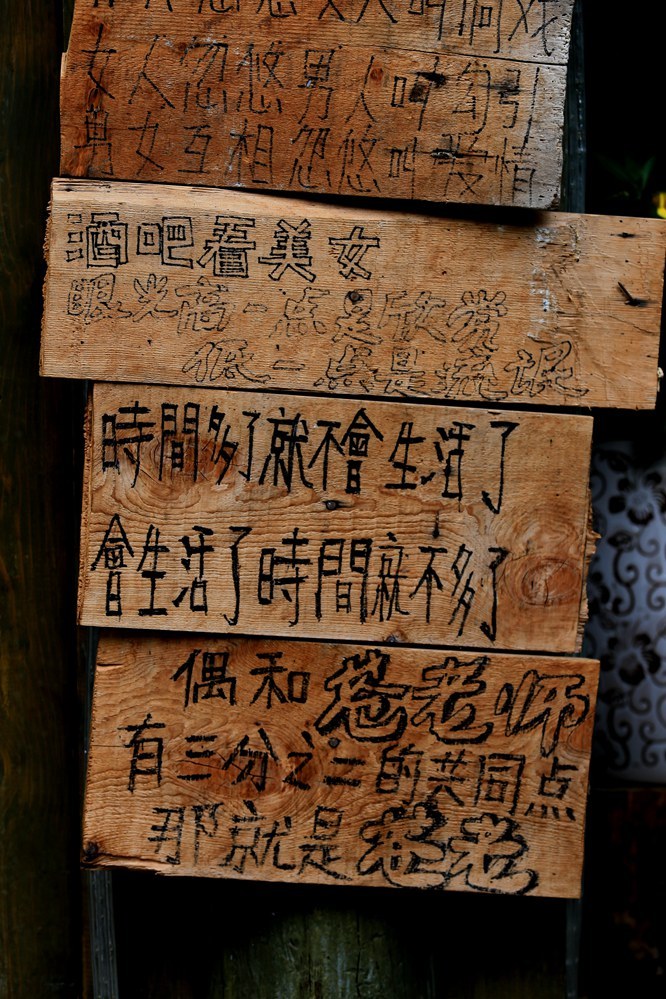 人忽悠女人叫调戏
女人忽悠男人叫勾引
男女互相忽悠叫爱情
酒吧看美女
眼光高一点是欣赏
低一点是流氓
時間多了就不會生活了
會生活了時間就不多了
偶和苍老师
有三分之二的共同点
那就是苍老